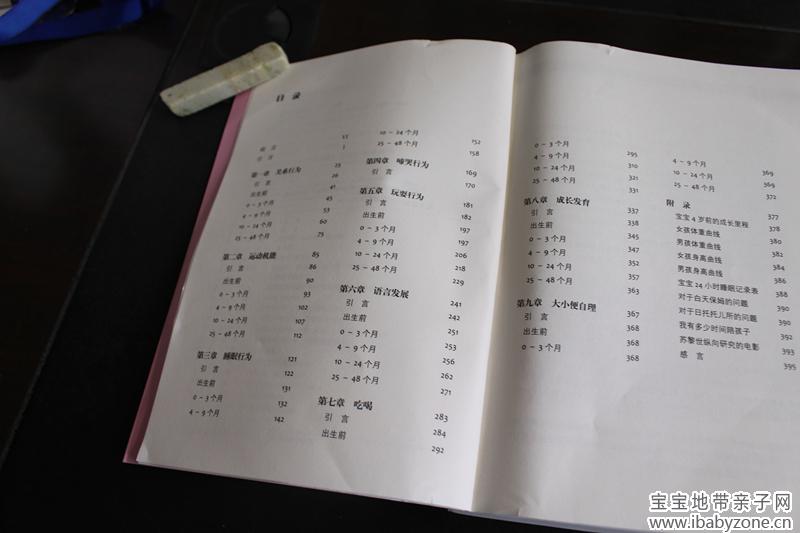 目 录
前 言 VI
引 言 1
第一章 关系行为 25
引 言 26
出生前 41
0 ~ 3 个月 45
4 ~ 9 个月 53
10 ~ 24 个月 60
25 ~ 48 个月 75
第二章 运动机能 85
引 言 86
出生前 90
0 ~ 3 个月 93
4 ~ 9 个月 102
10 ~ 24 个月 107
25 ~ 48 个月 112
第三章 睡眠行为 121
引 言 122
出生前 131
0 ~ 3 个月 132
4 ~ 9 个月 142
10 ~ 24 个月 152
25 ~ 48 个月 158
第四章 啼哭行为 169
引 言 170
第五章 玩耍行为 181
引 言 182
出生前 197
0 ~ 3 个月 197
4 ~ 9 个月 206
10 ~ 24 个月 218
25 ~ 48 个月 229
第六章 语言发展 241
引 言 242
出生前 251
0 ~ 3 个月 253
4 ~ 9 个月 256
10 ~ 24 个月 262
25 ~ 48 个月 271
第七章 吃喝 283
引 言 284
出生前 292
0 ~ 3 个月 295
4 ~ 9 个月 310
10 ~ 24 个月 331
25 ~ 48 个月 331
第八章 成长发育 337
引 言 338
出生前 345
0 ~ 3 个月
4 ~ 9 个月 357
10 ~ 24 个月
25 ~ 48 个月
第九章 大小便自理 367
引 言 368
出生前 368
0 ~ 3 个月 368
4 ~ 9 个月 369
10 ~ 24 个月 369
25 ~ 48 个月 372
附 录 377
宝宝 4 岁前的成长里程 378
女孩体重曲线 380
男孩体重曲线 382
女孩身高曲线 384
男孩身高曲线
宝宝 24 小时睡眠记录表 388
对于白天保姆的问题 390
对于日托托儿所的问题 392
我有多少时间陪孩子 393
苏黎世纵向研究的电影
感 言 395
宝宝地带亲子网
www.ibabyzone.cn